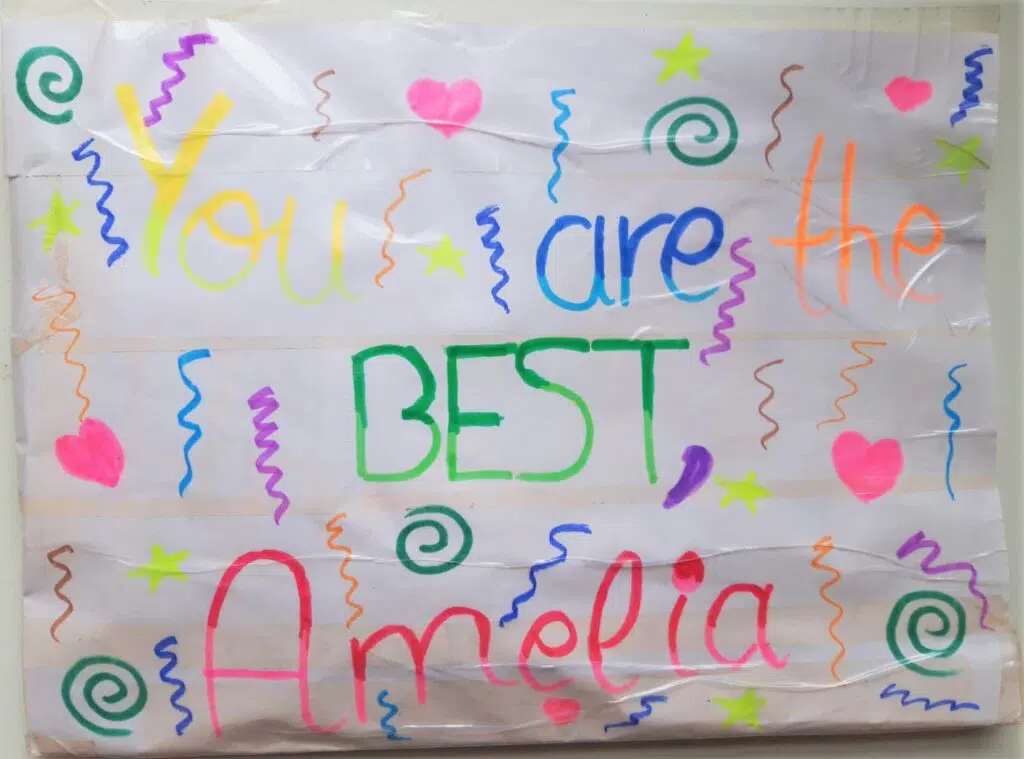 You are the
BEST,
Amelia